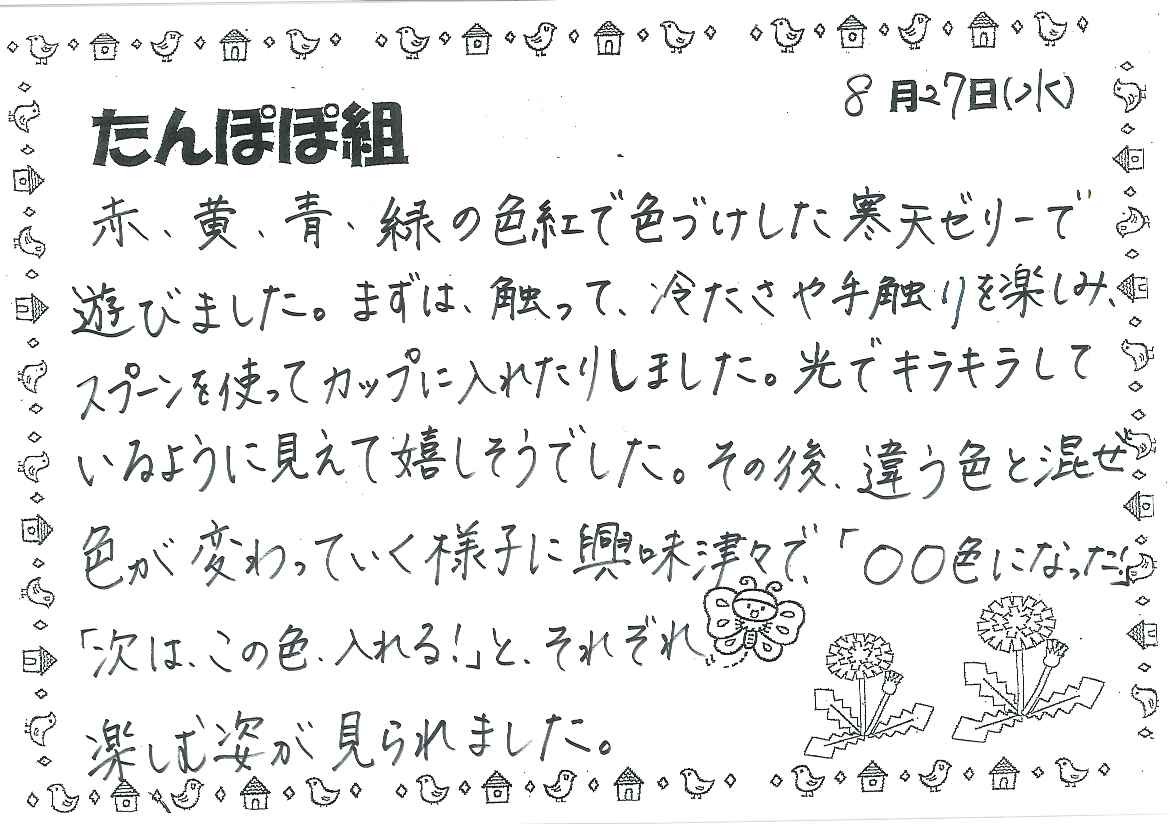 8月27日(水)
たんぽぽ組
赤、黄、青、緑の色紅で色づけした寒天ゼリーで
遊びました。まずは、触って、冷たさや手触りを楽しみ、
スプーンを使ってカップに入れたりしました。光でキラキラして
いるように見えて嬉しそうでした。その後、違う色と混ぜ
色が変わっていく様子に興味津々で、「〇〇色になった!」
「次は、この色、入れる!」と、それぞれ
楽しむ姿が見られました。